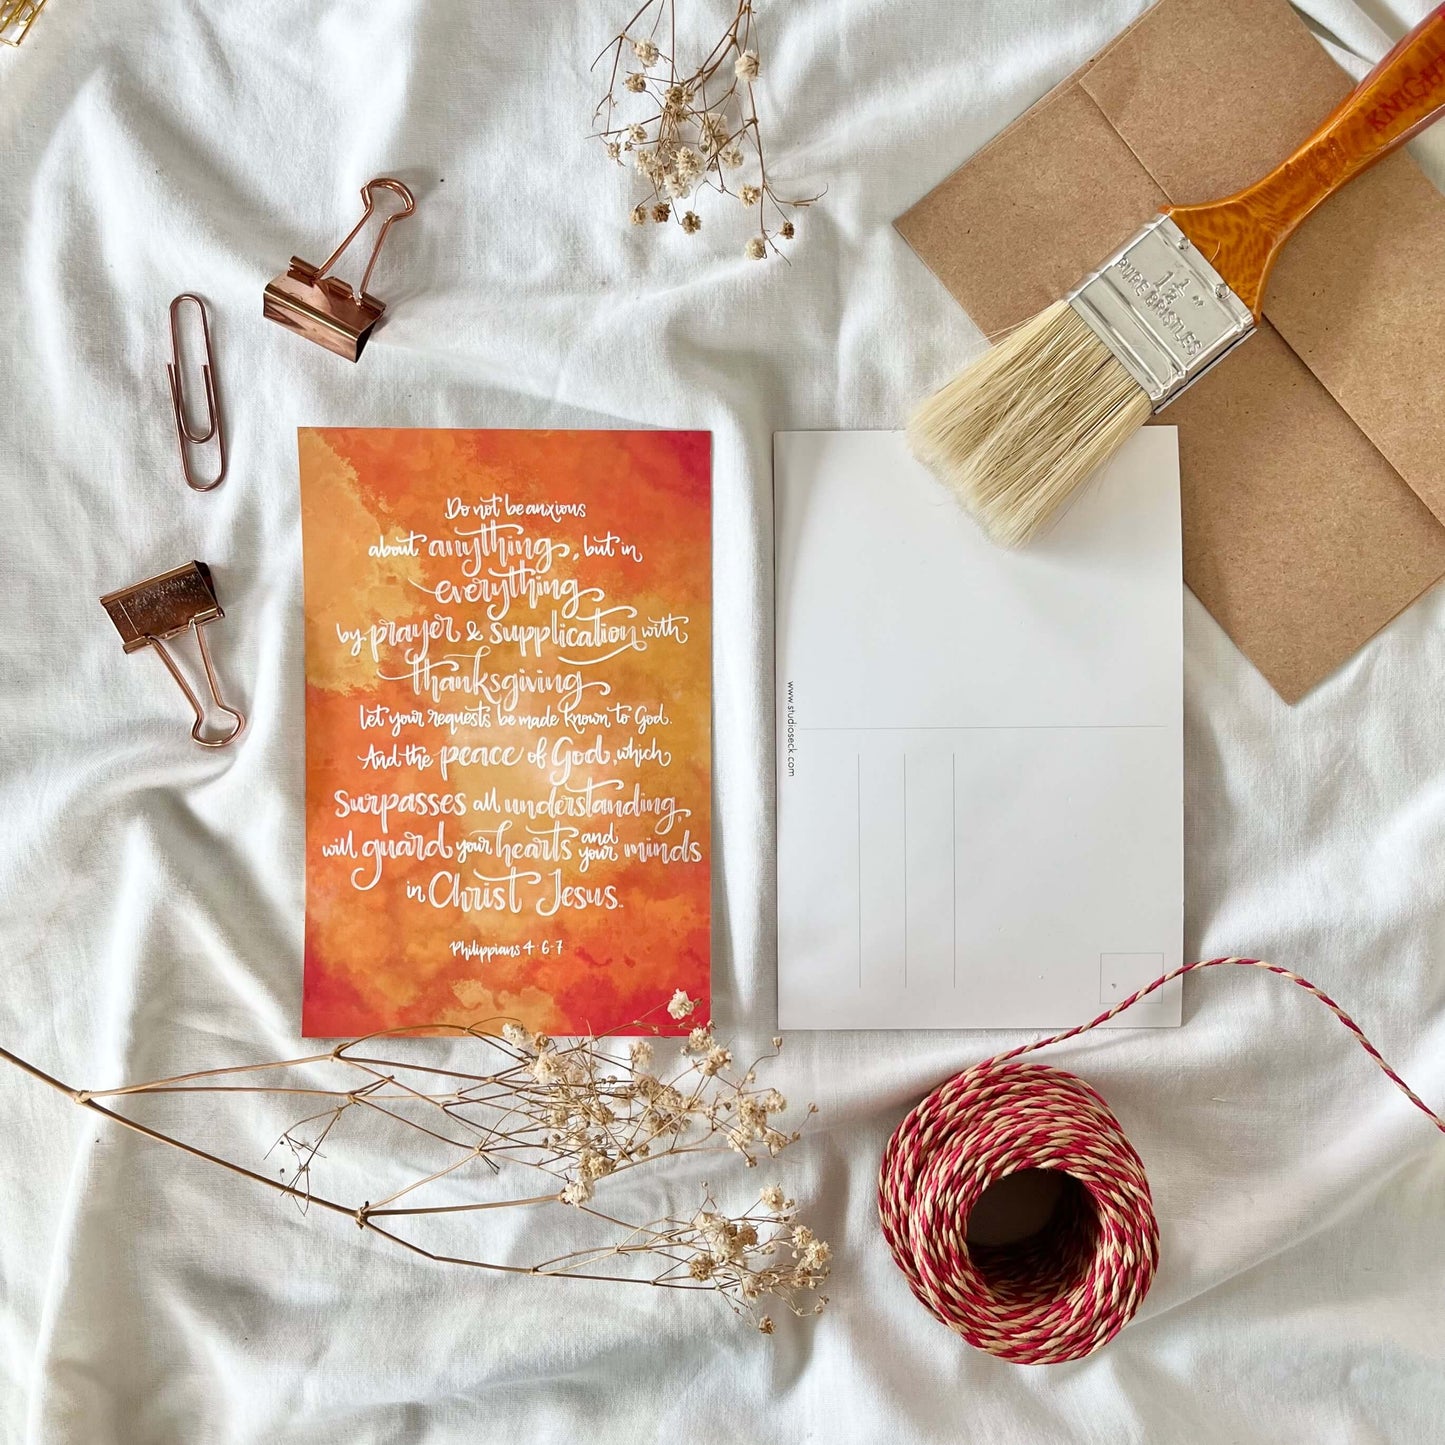 Do not be anxious
about anything, but in
everything
by prayer & supplication with
thanksgiving
let your requests be made known to God.
And the peace of God, which
surpasses all understanding,
will guard your hearts and your minds
in Christ Jesus.
Philippians 4:6-7
www.studioseck.com
KNIGHT
1 1/2"
PURE BRISTLES